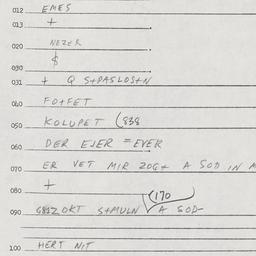 012 EMES
013 +
020 NEZER
030 $
031 + Q S+PASLOS+N
040 FO+FET
050 KOLUPET (838
060 DER EJER = EVER
070 ER VET MIR ZOG+ A SOD IN
080 +
(170
090 OKT S+MULN A SOD
100 HERT NIT